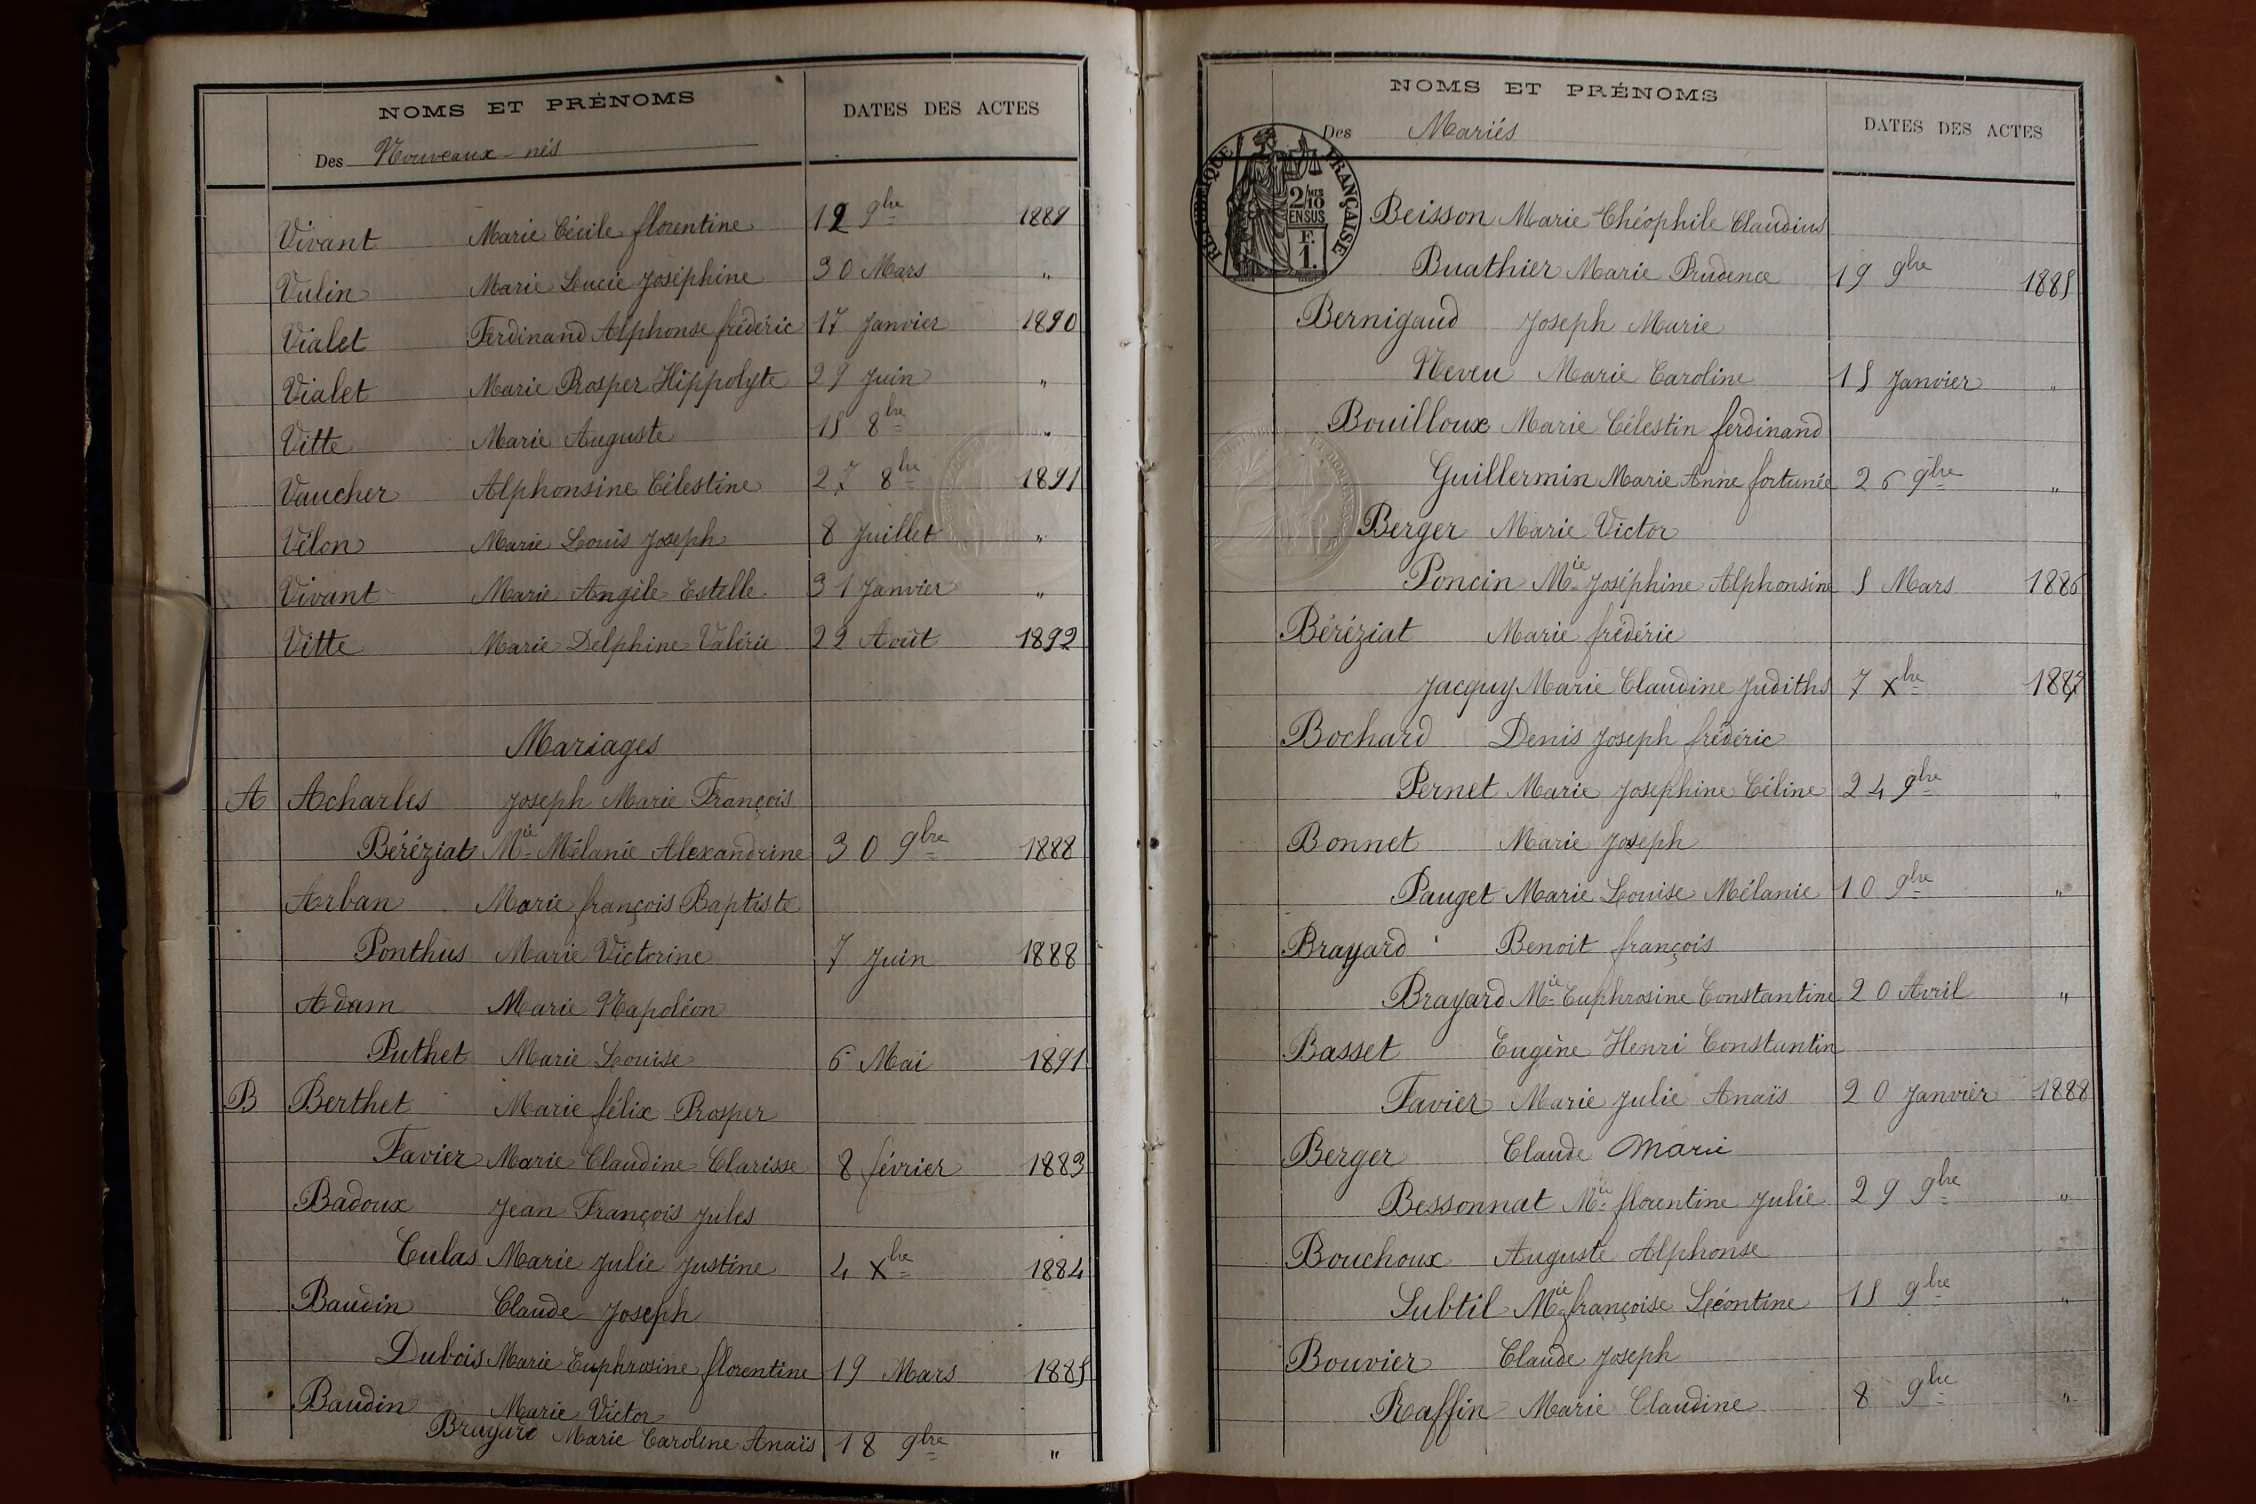 NOMS ET PRÉNOMS
DATES DES ACTES
Des Nouveaux-nés
Vivant Marie Cécile florentine 12 9bre 1889
Vulin Marie Lucie Joséphine 30 Mars "
Vialet Ferdinand Alphonse frédéric 17 Janvier 1890
Vialet Marie Prosper Hippolyte 29 Juin "
Vitte Marie Auguste 15 8bre "
Vaucher Alphonsine Célestine 27 8bre 1891
Vélon Marie Louis Joseph 8 Juillet "
Vivant Marie Angèle Estelle 31 Janvier "
Vitte Marie Delphine Valérie 22 Août 1892
Mariages
A Acharles Joseph Marie François
Béréziat Mie Mélanie Alexandrine 30 9bre 1888
Arban Marie françois Baptiste
Ponthus Marie Victorine 7 Juin 1888
Adam Marie Napoléon
Puthet Marie Louise 6 Mai 1891
B Berthet Marie félix Prosper
Favier Marie Claudine Clarisse 8 février 1883
Badoux Jean François Jules
Culas Marie Julie Justine 4 Xbre 1884
Baudin Claude Joseph
Dubois Marie Euphrosine florentine 19 Mars 1885
Baudin Marie Victor
Brayard Marie Caroline Anaïs 18 9bre "
NOMS ET PRÉNOMS
DATES DES ACTES
Des Mariés
RÉPUBLIQUE FRANÇAISE
2/10 MES
EN SUS
F.
1.
Beisson Marie Théophile Claudius
Buathier Marie Prudence 19 9bre 1885
Bernigaud Joseph Marie
Neveu Marie Caroline 15 Janvier "
Bouilloux Marie Célestin ferdinand
Guillermin Marie Anne fortunée 26 9bre "
Berger Marie Victor
Poncin Mie Joséphine Alphonsine 5 Mars 1886
Béréziat Marie frédéric
Jacquy Marie Claudine Judiths 7 Xbre 1887
Bochard Denis Joseph frédéric
Pernet Marie Josephine Céline 24 9bre "
Bonnet Marie Joseph
Pauget Marie Louise Mélanie 10 9bre "
Brayard Benoit françois
Brayard Mie Euphrosine Constantine 20 Avril "
Basset Eugène Henri Constantin
Favier Marie Julie Anaïs 20 Janvier 1888
Berger Claude Marie
Bessonnat Mie florentine Julie 29 9bre "
Bouchoux Auguste Alphonse
Subtil Mie françoise Léontine 15 9bre "
Bouvier Claude Joseph
Raffin Marie Claudine 8 9bre "